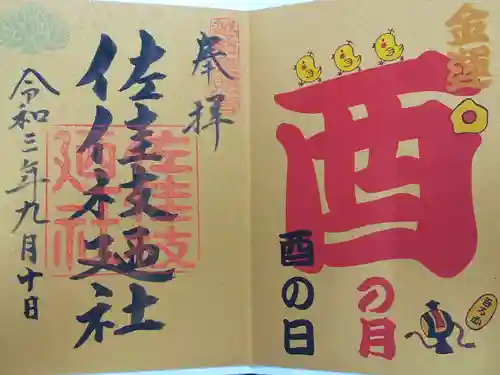 奉拝
佐佳枝廼社
佐佳枝
廼社
令和三年九月十日
金運
酉
の月
酉の日